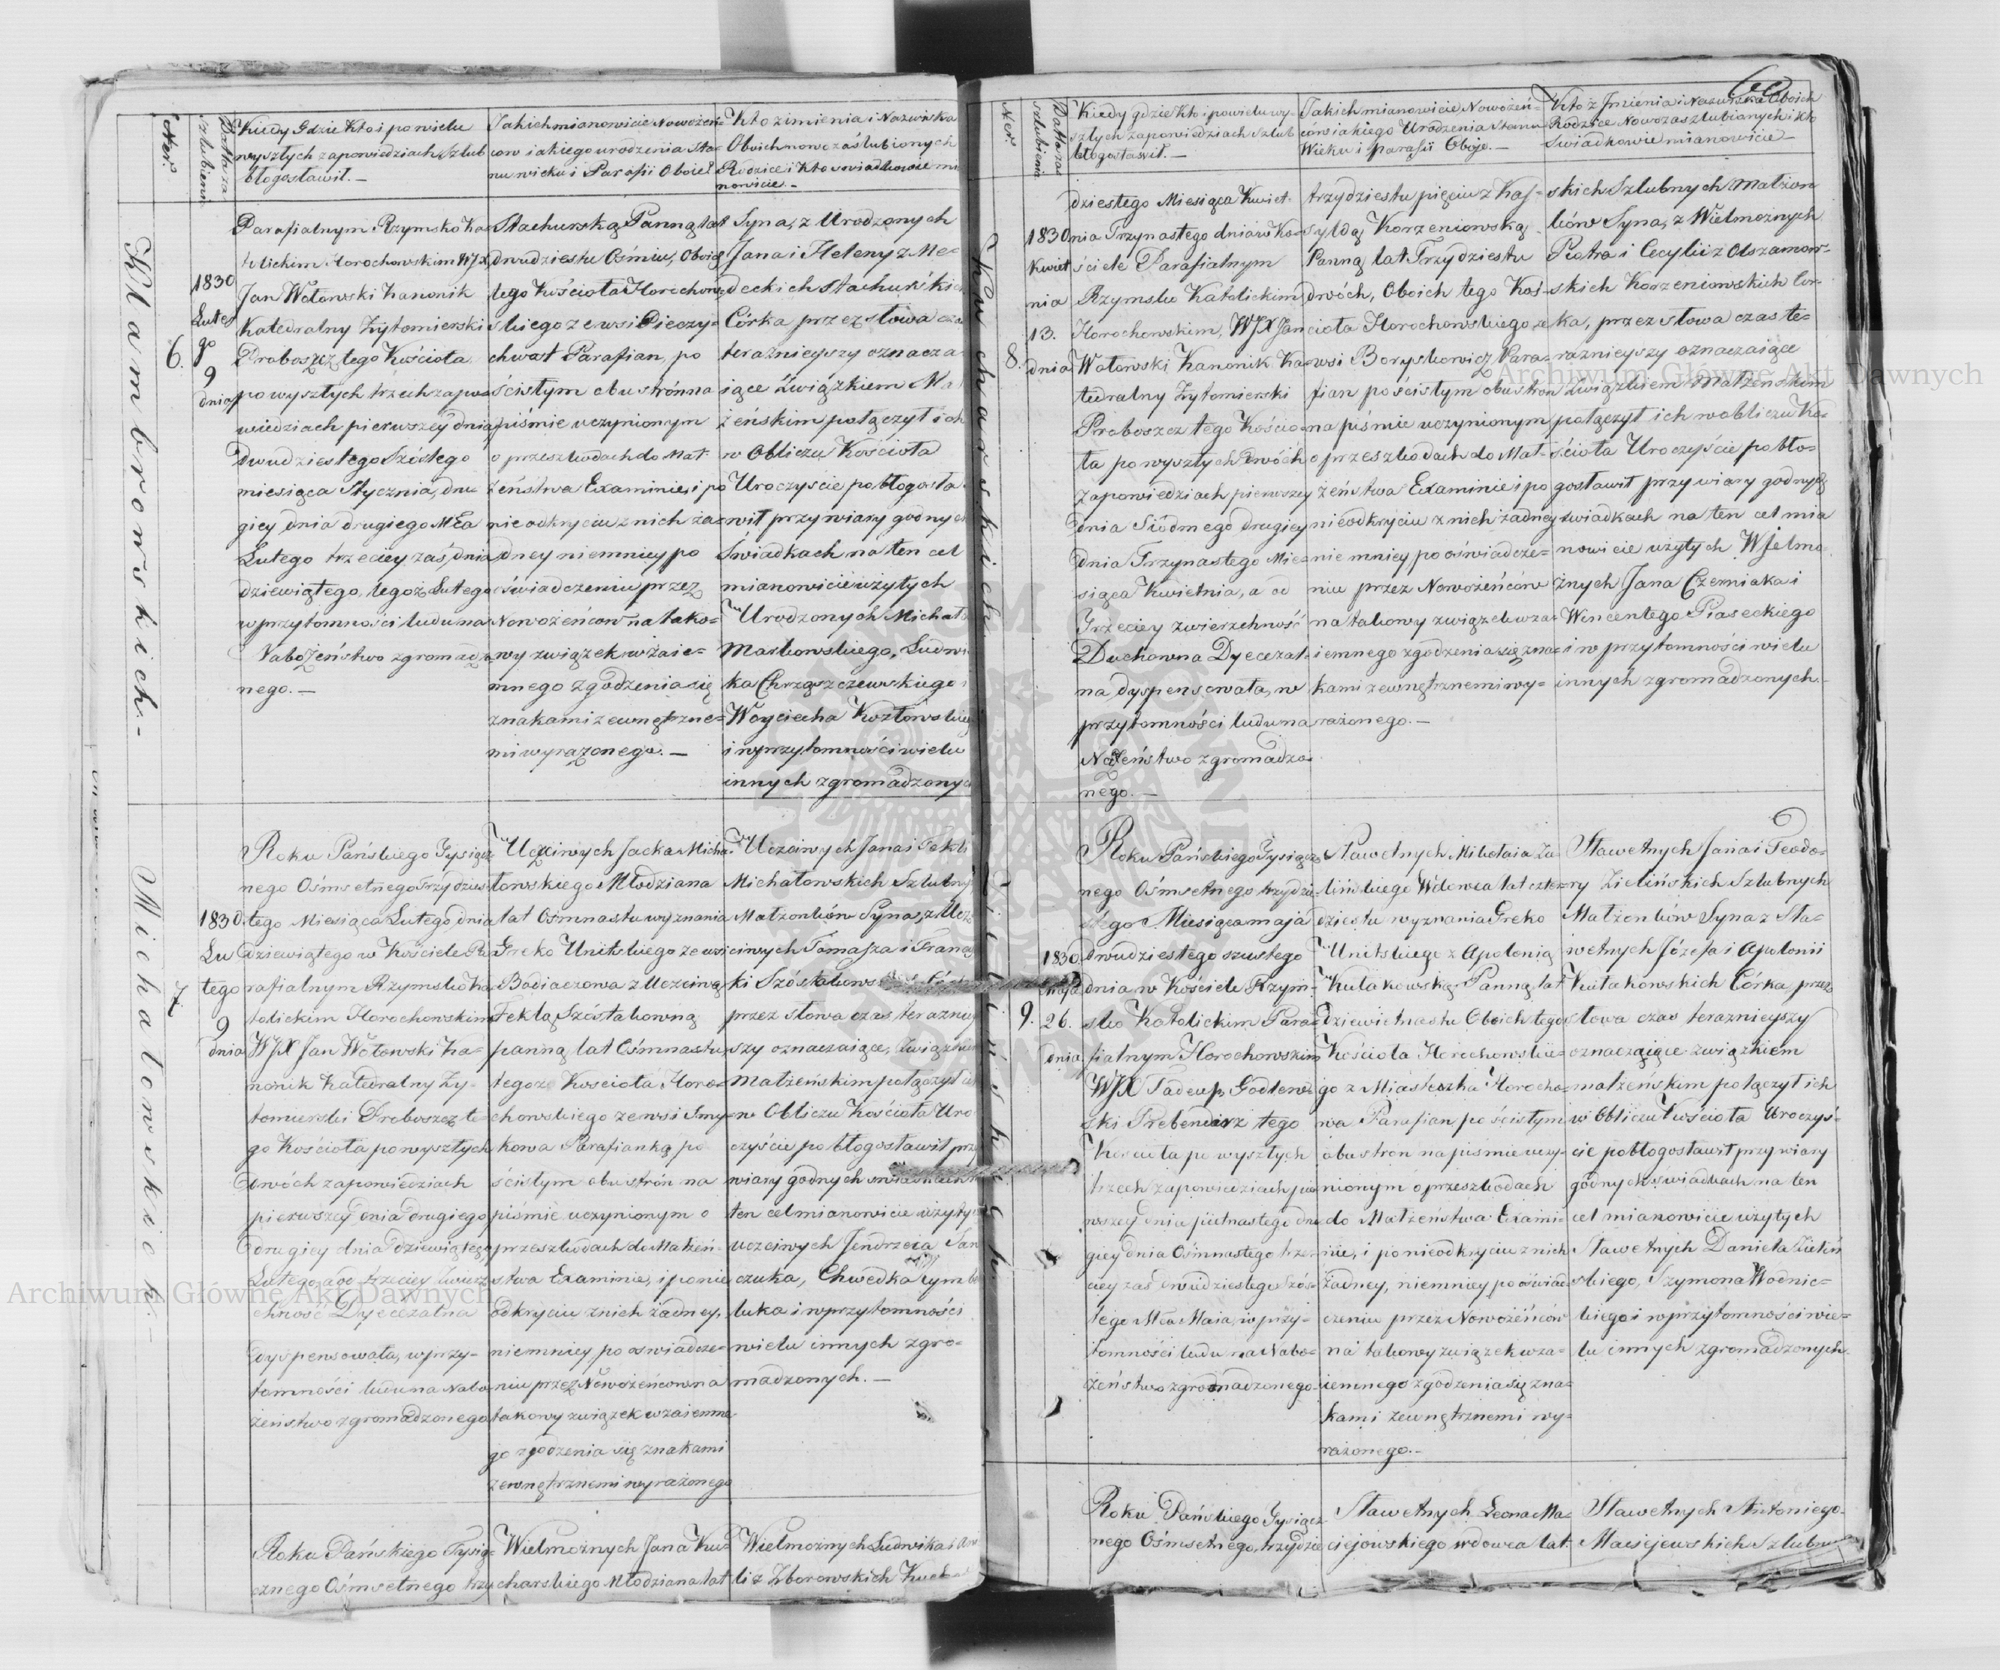 Ner.
Datta za
szlubienia
Kiedy Gdzie Kto i po wielu
wyszłych zapowiedziach Szlub
błogosławił. —
Jakich mianowicie Nowożeń-
ców i jakiego urodzenia Sta-
nu wieku i Parafii Oboie
Kto z imienia i Nazwiska
Oboich nowo zaślubionych
Rodzice i Kto świadkowie mi
nowicie. —
Klambrowskich. —
6.
1830
Luteg
go
9
dnia
Parafialnym Rzymsko Ka
tolickim Horochowskim WJX
Jan Wołowski Kanonik
Katedralny Żytomierski
Proboszcz tego Kościoła
po wyszłych trzech zapo-
wiedziach pierwszey dnia
dwudziestego Szóstego
miesiąca Stycznia, dru
giey dnia drugiego Mca
Lutego trzeciey zaś dnia
dziewiątego, tegoż Lutego
w przytomności ludu na
Nabożeństwo zgromadzo
nego. —
Stachurską Panną lat
dwudziestu Ośmiu, Oboie
tego Kościoła Horochow
skiego ze wsi Pieczy-
chwast Parafian, po
ścisłym obustronna
piśmie uczynionym
o przeszkodach do Mał-
żeństwa Examinie, i po
nieodkryciu z nich ża
dney niemniey po
oświadczeniu przez
Nowożeńców na tako-
wy związek wzaie-
mnego zgodzenia się
znakami zewnętrzne-
mi wyrażonego. —
Syna, z Urodzonych
Jana i Heleny z Me-
deckich Stachurskich
Córka przez słowa cza
teraźnieyszy oznacza-
iące Związkiem Ma
żeńskim połączył i ch
w Obliczu Kościoła
Uroczyście pobłogosła
wił przy wiary godnych
Świadkach na ten cel
mianowicie użytych
Urodzonych Michała
Markowskiego, Ludwi
ka Chrząszczewskiego i
Woyciecha Kozłowskieg
i w przytomności wielu
innych zgromadzonych
Michałowskich. —
7
1830.
Lu
tego
9
dnia
Roku Pańskiego Tysiącz
nego Ośmsetnego Trzydzies
tego Miesiąca Lutego dnia
dziewiątego w Kościele Pa
rafialnym Rzymsko Ka
tolickim Horochowskim
WJX Jan Wołowski Ka-
nonik Katedralny Ży-
tomierski Proboszcz te-
go Kościoła po wyszłych
dwóch zapowiedziach
pierwszey dnia drugiego
drugiey dnia dziewiątego
Lutego, a od trzeciey Zwierz
chność Dyecezalna
dyspensowała, w przy-
tomności ludu na Nabo
żeństwo zgromadzonego
Uczciwych Jacka Micha
łowskiego Młodziana
lat Ośmnastu wyznania
Greko Unitskiego ze wsi
Boiaczowa z Uczciwą
Teklą Szóstakowną
panną lat Ośmnastu,
tegoż Kościoła Horo-
chowskiego ze wsi Smy-
kowa Parafianką po
ścisłym obustrón na
piśmie uczynionym o
przeszkodach do Małżeń-
stwa Examinie, i ponie
odkryciu z nich żadney,
niemniey po oswiadcze-
niu przez Nowożeńców na
takowy związek wzaiemne
go zgodzenia się znakami
zewnętrznemi wyrażonego
Uczciwych Jana i Tekli
Michałowskich Szlubny
Małżonków Syna, z Ucz
ciwych Tomasza i Franci
ki Szóstakows
przez słowa czas teraźniey
szy oznaczaiące, Związkie
Małżeńskim połączył ich
w Obliczu Kościoła Uro
czyście pobłogosławił prz
wiary godnych świadkach n
ten cel mianowicie użyty
uczciwych Jendrzeia San
czuka, Chwedka Cymba
luka i w przytomności
wielu innych zgro-
madzonych. —
Roku Pańskiego Tysią-
cznego Ośmsetnego trzy
Wielmożnych Jana Ku-
charskiego Młodziana lat
Wielmożnych Ludwika i An
li z Zborowskich Kucha
60
Ner.
Datta za
szlubienia
Kiedy gdzie Kto i po wielu wy-
szłych zapowiedziach Szlub
błogosławił. —
Jakich mianowicie Nowożeń-
ców i jakiego Urodzenia Stanu
Wieku i parafii Oboje. —
Kto z Imienia i Nazwiska Oboich
Rodzice Nowozaszlubianych i kto
Świadkowie mianowicie —
Kucharskich
8.
1830
Kwiet
nia
13.
dnia
dziestego Miesiąca Kwiet-
nia Trzynastego dnia w Ko-
ściele Parafialnym
Rzymsko Katolickim
Horochowskim, WJX Jan
Wołowski Kanonik Ka
tedralny Żytomierski
Proboszcz tego Kościo
ła po wyszłych dwóch
zapowiedziach pierwszey
dnia Siódmego drugiey
dnia Trzynastego Mie-
siąca Kwietnia, a od
Trzeciey zwierzchność
Duchowna Dyecezal-
na dyspensowała, w
przytomności ludu na
Nabożeństwo zgromadzo
nego. —
trzydziestu pięciu z Kas-
syldą Korzeniowską
Panną lat Trzydziestu
dwóch, Oboich tego Koś-
cioła Horochowskiego, ze
wsi Boryskowicz Para-
fian po ścisłym obustron
na piśmie uczynionym
o przeszkodach do Mał-
żeństwa Examinie i po
nieodkryciu z nich żadney
nie mniey po oświadcze-
niu przez Nowożeńców
na takowy związek wza-
iemnego zgodzenia się zna-
kami zewnętrznemi wy-
rażonego. —
skich Szlubnych Małżon
ków Syna, z Wielmożnych
Piotra i Cecylii z Olszamow-
skich Korzeniowskich Cor-
ka, przez słowa czas te-
raźnieyszy oznaczaiące
Związkiem Małżeńskim
połączył ich w obliczu Ko-
ścioła Uroczyście pobło-
gosławił przy wiary godnych
świadkach na ten cel mia
nowicie użytych Wielmo
żnych Jana Czerniaka i
Wincentego Piaseckiego
i w przytomności wielu
innych zgromadzonych. —
Zielińskich.
9.
1830.
Maja
26.
dnia
Roku Pańskiego Tysiącz
nego Ośmsetnego trzydzie
stego Miesiąca maja
dwudziestego szustego
dnia w Kościele Rzym-
sko Katolickim Para-
fialnym Horochowskim
WJX Tadeusz Godlew-
ski Prebendarz tego
Kościoła po wyszłych
trzech zapowiedziach pier
wszey dnia piętnastego dru
giey dnia Ośmnastego trze
ciey zaś dwudziestego Szós-
tego Mca Maia, w przy-
tomności ludu na Nabo-
żeństwo zgromadzonego
Sławetnych Mikołaia Zie
lińskiego Wdowca lat czter-
dziestu wyznania Greko
Unitskiego z Apolonią
Kułakowską Panną lat
Dziewiętnastu Oboich tego
Kościoła Horochowskie-
go z Miasteczka Horocho-
wa Parafian po ścisłym
obustron na piśmie uczy-
nionym o przeszkodach
do Małżeństwa Exami-
nie, i po nieodkryciu z nich
żadney, niemniey po oświad
czeniu przez Nowożeńców
na takowy związek wza-
iemnego zgodzenia się zna-
kami zewnętrznemi wy-
rażonego. —
Sławetnych Jana i Teodo-
ry Zielińskich Szlubnych
Małżonków Syna z Sła-
wetnych Józefa i Apolonii
Kułakowskich Córka, przez
słowa czas teraźnieyszy
oznaczaiące związkiem
małżeńskim połączył ich
w Obliczu Kościoła Uroczyś-
cie pobłogosławił przy wiary
godnych świadkach na ten
cel mianowicie użytych
Sławetnych Daniela Zieliń
skiego, Szymona Wodnic-
kiego i w przytomności wie-
lu innych zgromadzonych.
Roku Pańskiego Tysiącz
nego Ośmsetnego, trzydzie
Sławetnych Leona Ma-
ciejowskiego wdowca lat
Sławetnych Antoniego
Maciejewskich Szlubny
Archiwum Główne Akt Dawnych
Archiwum Główne Akt Dawnych